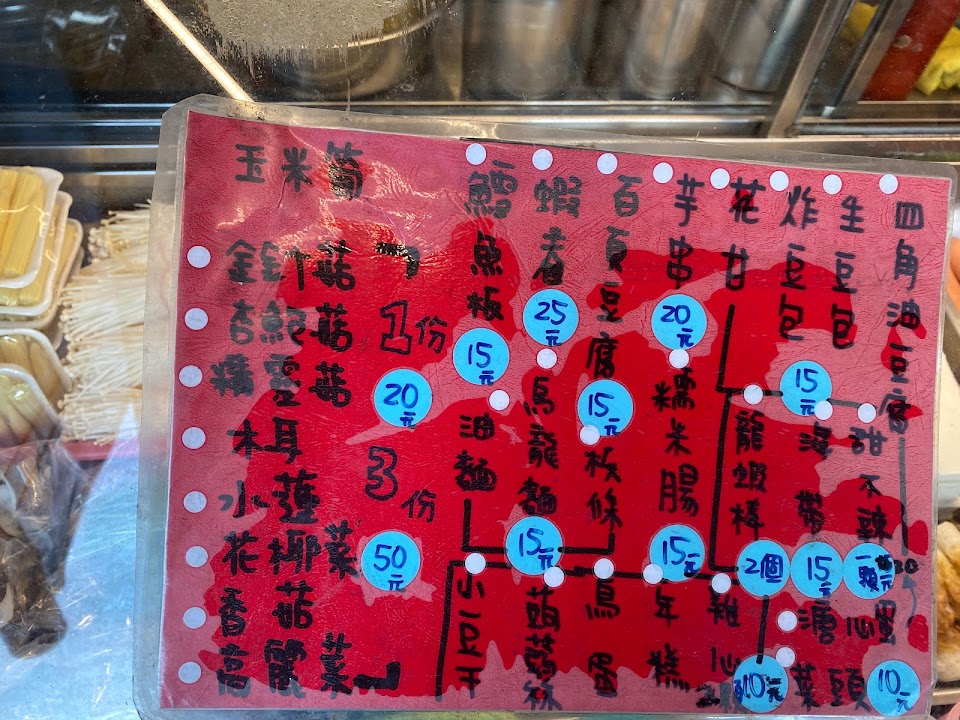 玉米筍
金針菇
杏鮑菇
精靈菇
木耳
水蓮
花椰菜
香菇
高麗菜
1份
20元
3份
50元
四角油豆腐
生豆包
炸豆包
15元
花甘
芋串
20元
百頁豆腐
15元
蝦卷
25元
鱈魚板
15元
甜不辣
一顆
海帶
15元
龍蝦棒
2個
10元
糯米腸
15元
板條
烏龍麵
15元
油麵
溏心蛋
菜頭
10元
雞心
年糕
鳥蛋
蒟蒻絲
小豆干